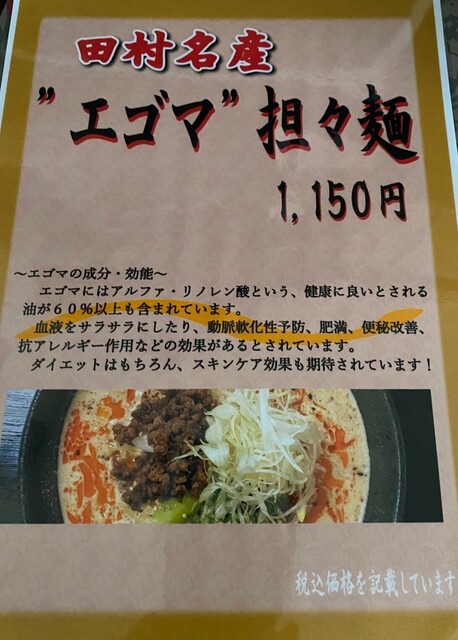 田村名産
”エゴマ”担々麺
1,150円
～エゴマの成分・効能～
エゴマにはアルファ・リノレン酸という、健康に良いとされる
油が６０％以上も含まれています。
血液をサラサラにしたり、動脈軟化性予防、肥満、便秘改善、
抗アレルギー作用などの効果があるとされています。
ダイエットはもちろん、スキンケア効果も期待されています！
税込価格を記載しています